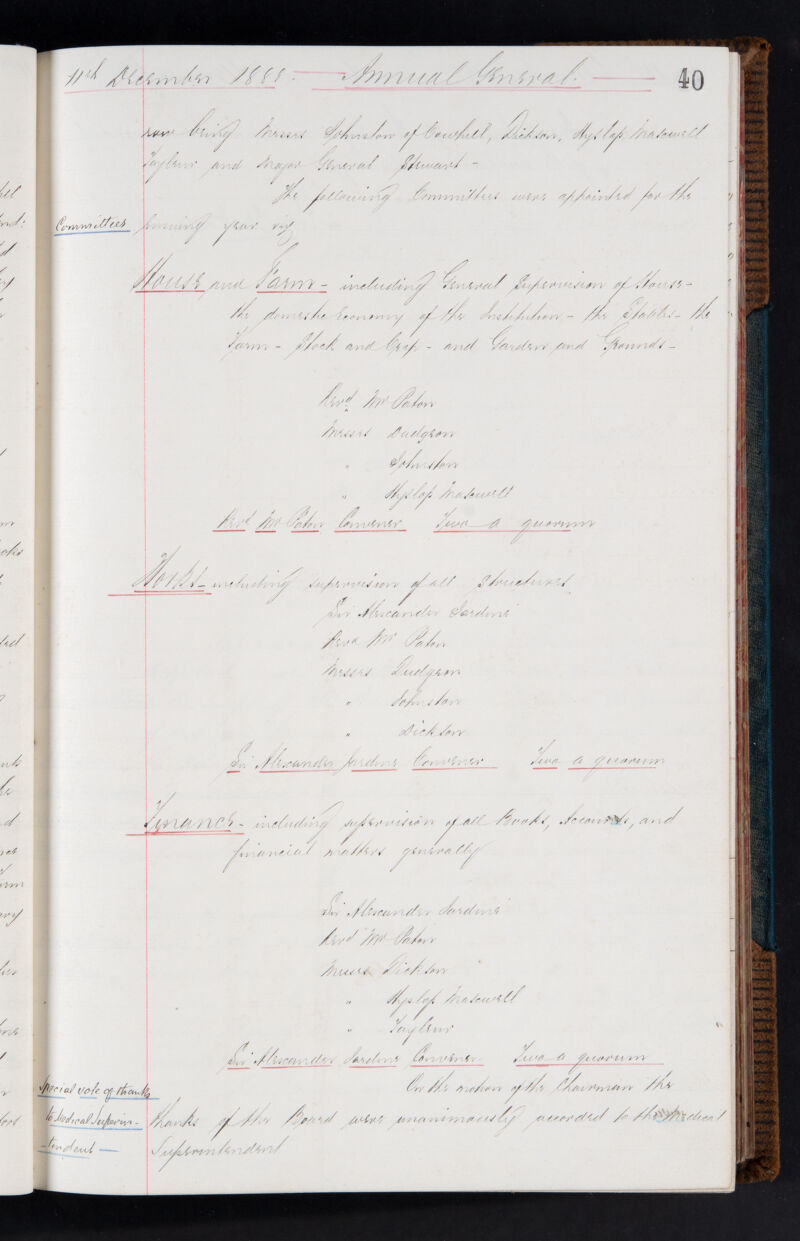 11th December 1888. Annual General. 40
now being Messrs Johnston of Cowhill, Dickson, Hyslop Maxwell
Tayleur and Major General Stewart -
The following Committees were appointed for the
Committees
Ensuing year viz
House and Farm - including General Supervision of House -
the domestic Economy of the Institution - the Stables - the
Farm - Stock and Crop - and Gardens and Grounds -
Revd Mr Paton
Messrs Dudgeon
" Johnston
" Hyslop Maxwell
Revd Mr Paton Convener Two a quorum
Works - including supervision of all Structures
Sir Alexander Jardine
Revd Mr Paton
Messrs Dudgeon
" Johnston
" Dickson
Sir Alexander Jardine Convener Two a quorum
Finance - including supervision of all Books, Accounts, and
financial matters generally
Sir Alexander Jardine
Revd Mr Paton
Messrs Dickson
" Hyslop Maxwell
" Tayleur
Sir Alexander Jardine Convener Two a quorum
On the motion of the Chairman the
Special vote of thanks
to Medical Superin-
-tendent -
thanks of the Board were unanimously accorded to the Medical
Superintendent